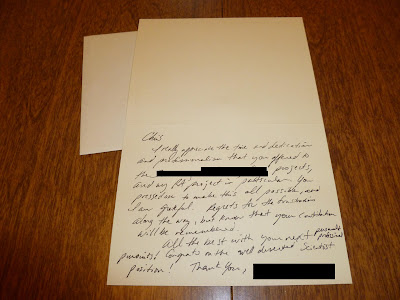 Chris
I really appreciate the time and dedication
and professionalism that you offered to
the projects,
and my project in particular. You
pressed on to make this all possible, and
I am grateful. Regrets for the frustrations
along the way, but know that your contribution
will be remembered.
All the best with your next personal & professional
pursuits! Congrats on the well deserved Scientist
position! Thank You,